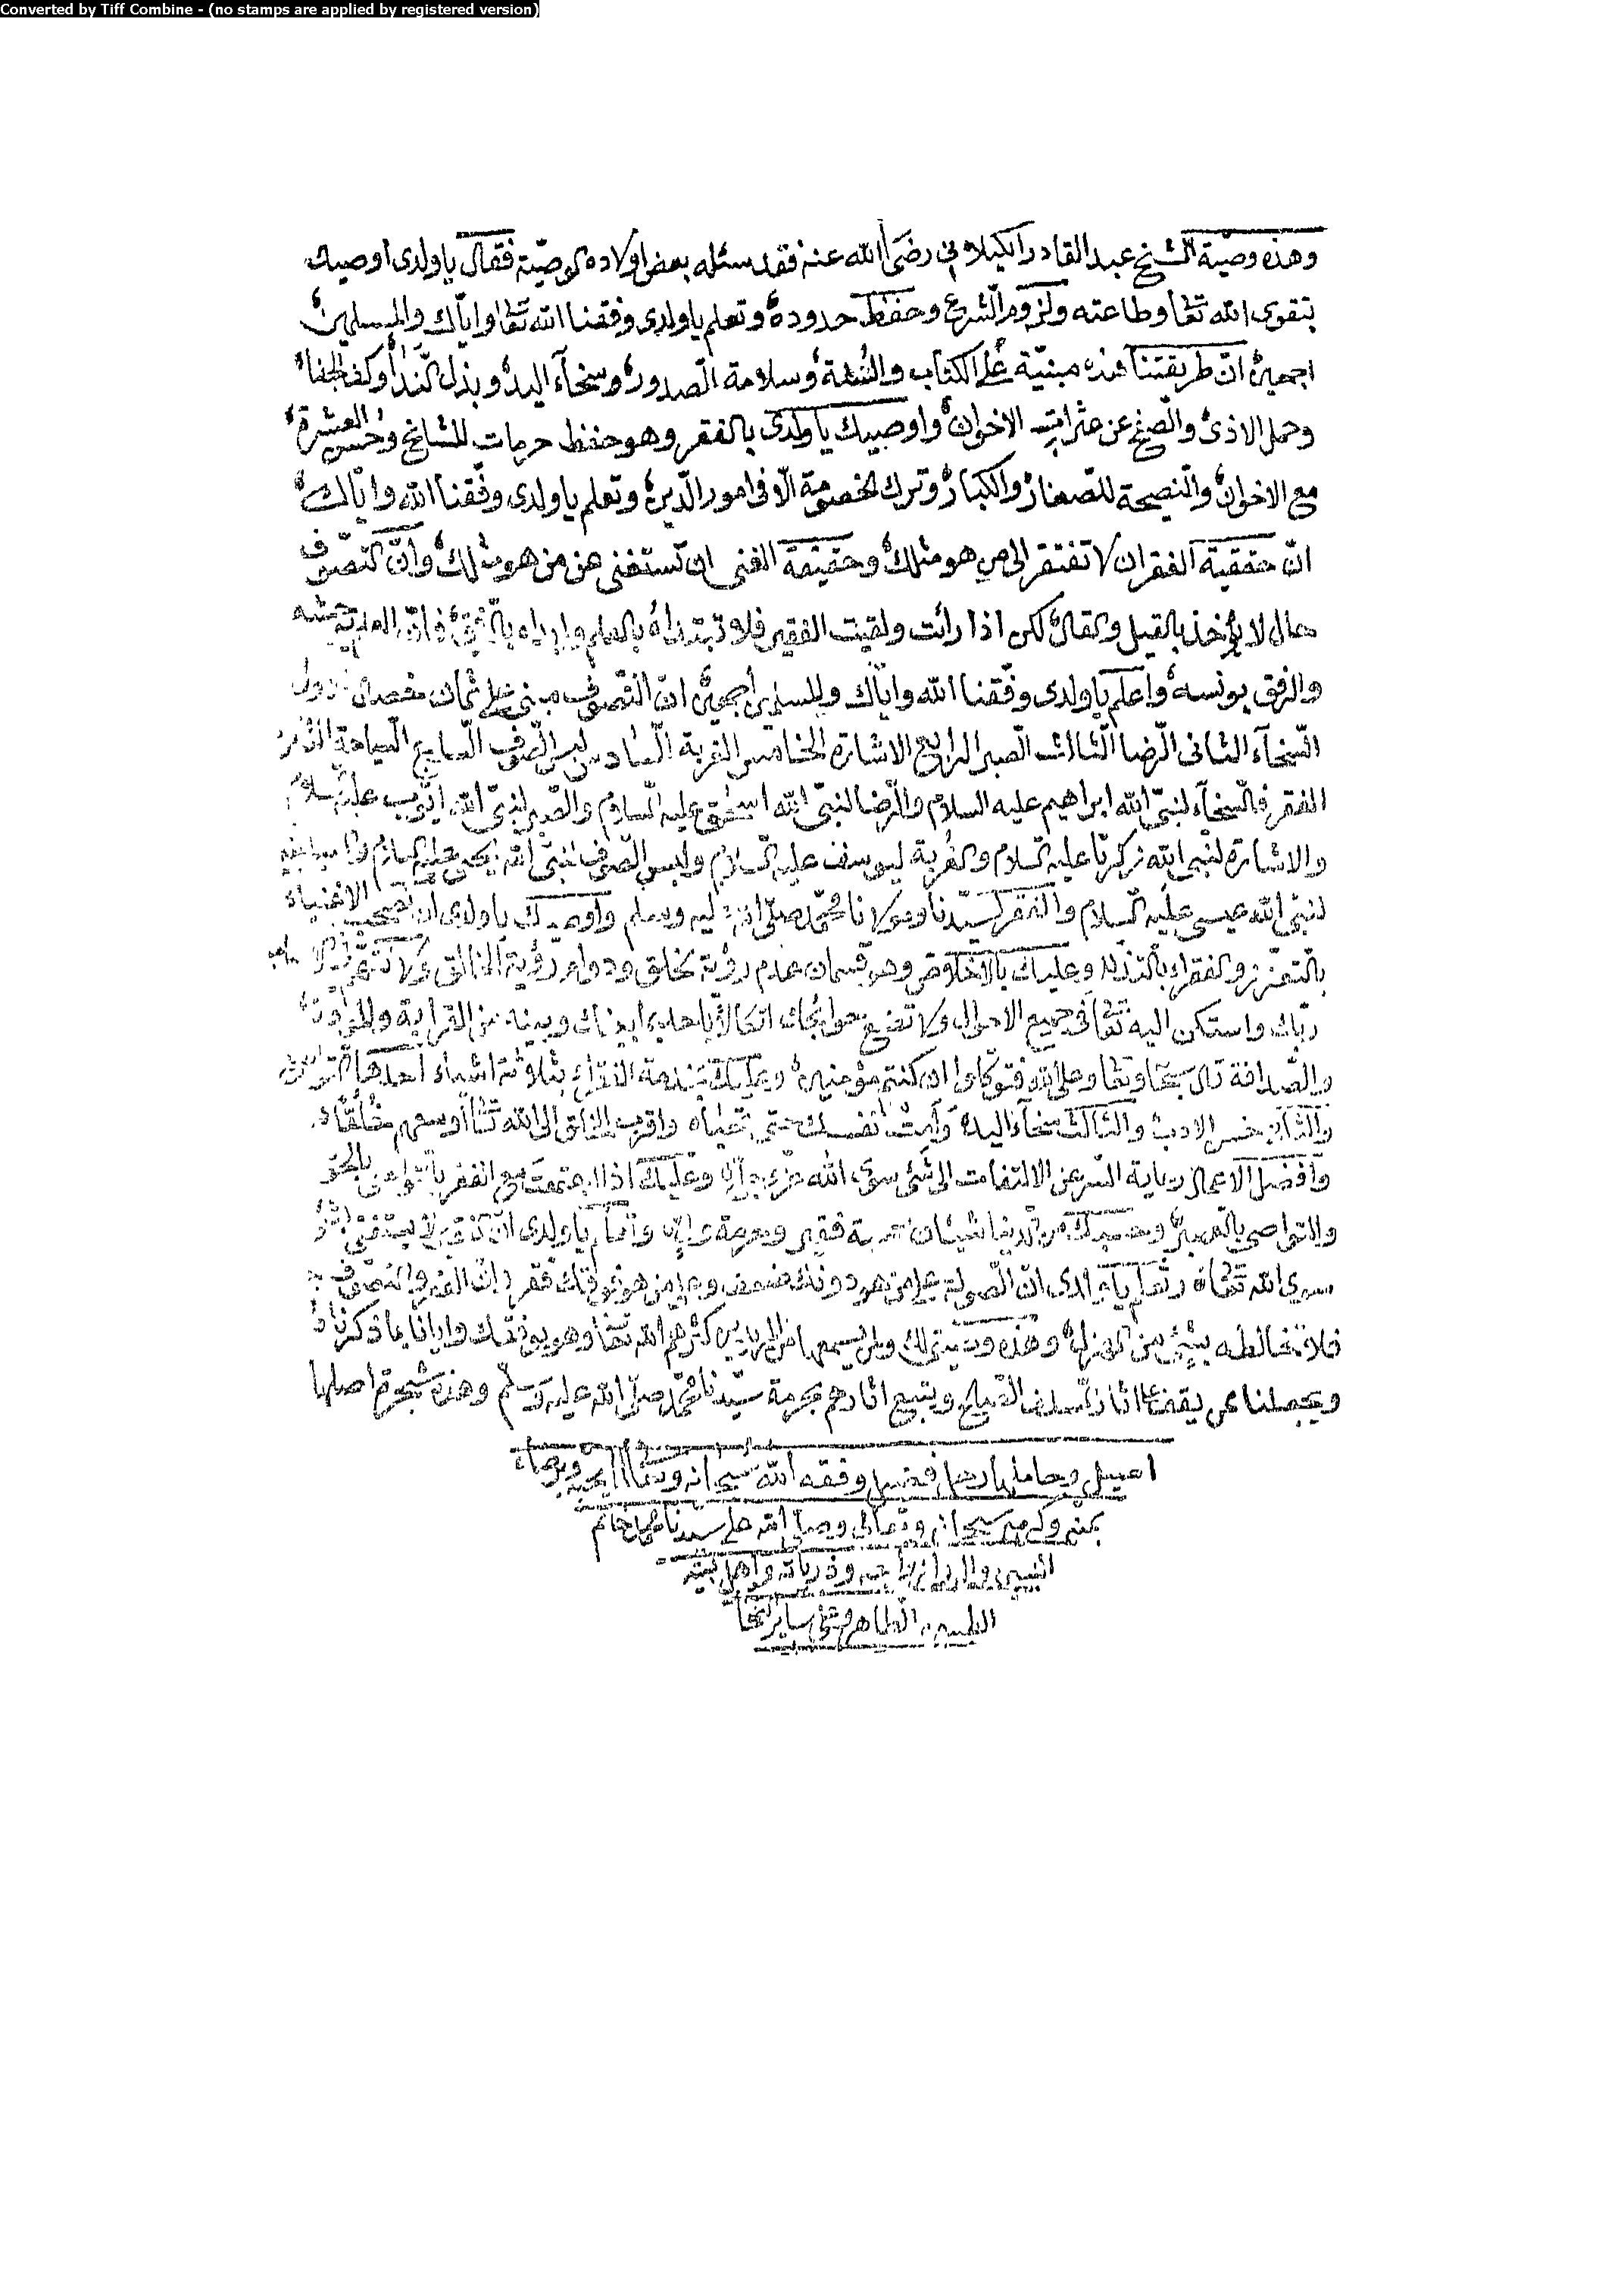 Converted by Tiff Combine - (no stamps are applied by registered version)
وهذه وصية الشيخ عبد القادر الكيلاني رضى الله عنه فقد سئله بعض اولاده الوصية فقال يا ولدى اوصيك
بتقوى الله تعا وطاعته ولزوم الشرع وحفظ حدوده وتعلم يا ولدى وفقنا الله تعا واياك والمسلمين
اجمعين ان طريقتنا هذه مبنية على الكتاب والسنة وسلامة الصدور وسخاء اليد وبذل الندا وكف الجفا
وحمل الاذى والصفح عن عثرات الاخوان واوصيك يا ولدى بالفقر وهو حفظ حرمات المشايخ وحسن العشرة
مع الاخوان والنصيحة للصغار والكبار وترك الخصومة الا فى امور الدين وتعلم يا ولدى وفقنا الله واياك
ان حققية الفقر ان لا تفتقر الى من هو مثلك وحقيقة الغنى ان تستغنى عن من هو مثلك وان التصوف
حال لا يؤخذ بالقيل والقال لكن اذا رأت ولقيت الفقير فلا تبتداه بالعلم وابداه بالرفق فان العلم يوحشه
والرفق يونسه واعلم يا ولدى وفقنا الله واياك والمسلمين اجمعين ان التصوف مبنى على ثمان
السخاء الثانى الرضا الثالث الصبر الرابع الاشارة الخامس الغربة السادس لبس الصوف السابع السياحة الثامن
الفقر فالسخاء لنبى الله ابراهيم عليه السلام والرضا لنبى الله اسحق عليه السلام والصبر لنبى الله ايوب عليه السلام
والاشارة لنبى الله زكريا عليه السلام والغربة ليوسف عليه السلام ولبس الصوف لنبى الله يحيى عليه السلام والسياحة
لنبى الله عيسى عليه السلام والفقر لسيدنا ومولانا محمد صلى الله عليه وسلم واوصيك يا ولدى ان تصحب الاغنياء
بالتعزز والفقراء بالتذلل وعليك بالاخلاص وهو قسمان عدم رؤية الخلق ودوام رؤية الخالق ولا تتهم
ربك واستكن اليه تعا فى جميع الاحوال ولا تضع حوايجك اتكالا باحد بينك وبينه من القرابة والمودة
والصداقة قال سبحا وتعا وعلى الله فتوكلوا ان كنتم مؤمنين وعليك بخدمة الفقراء بثلاثة اشياء احدها التواضع
والثانى حسن الادب والثالث سخاء اليد وأمت نفسك حتى تحياه واقرب الخلق الى الله تعا اوسعهم خلقا
وافضل الاعمال رعاية السر عن الالتفات الى شئ سوى الله عز وجل وعليك اذا اجتمعت مع الفقر بالتواصى بالحق
والتواصى بالصبر وحسبك من الدنيا شيئان صحبة فقير وحرمة ولى واعلم يا ولدى ان الفقير لا يستغنى بشئ
سوى الله تعا وتعلم يا ولدى ان الصولة على من هو دونك ضعف وعلى من هو فوقك فقر وان الفقر والتصوف جد
فلا تخالطه بشئ من الهزل وهذه وصيتى لك ولمن يسمعها من المريدين كثرهم الله تعا وهو يوفقك وايانا بما ذكرنا
ويجعلنا ممن يقف على اثار السلف الصالح ويتبع اثارهم بحرمة سيدنا محمد صلى الله عليه وسلم وهذه شجرة اصلها
وفقه الله سبحانه وتعا
بمنه وكرمه سبحانه وتعالى وصلى الله على سيدنا محمد خاتم
النبيين وذرياته واهل بيته
الطيبين الطاهر